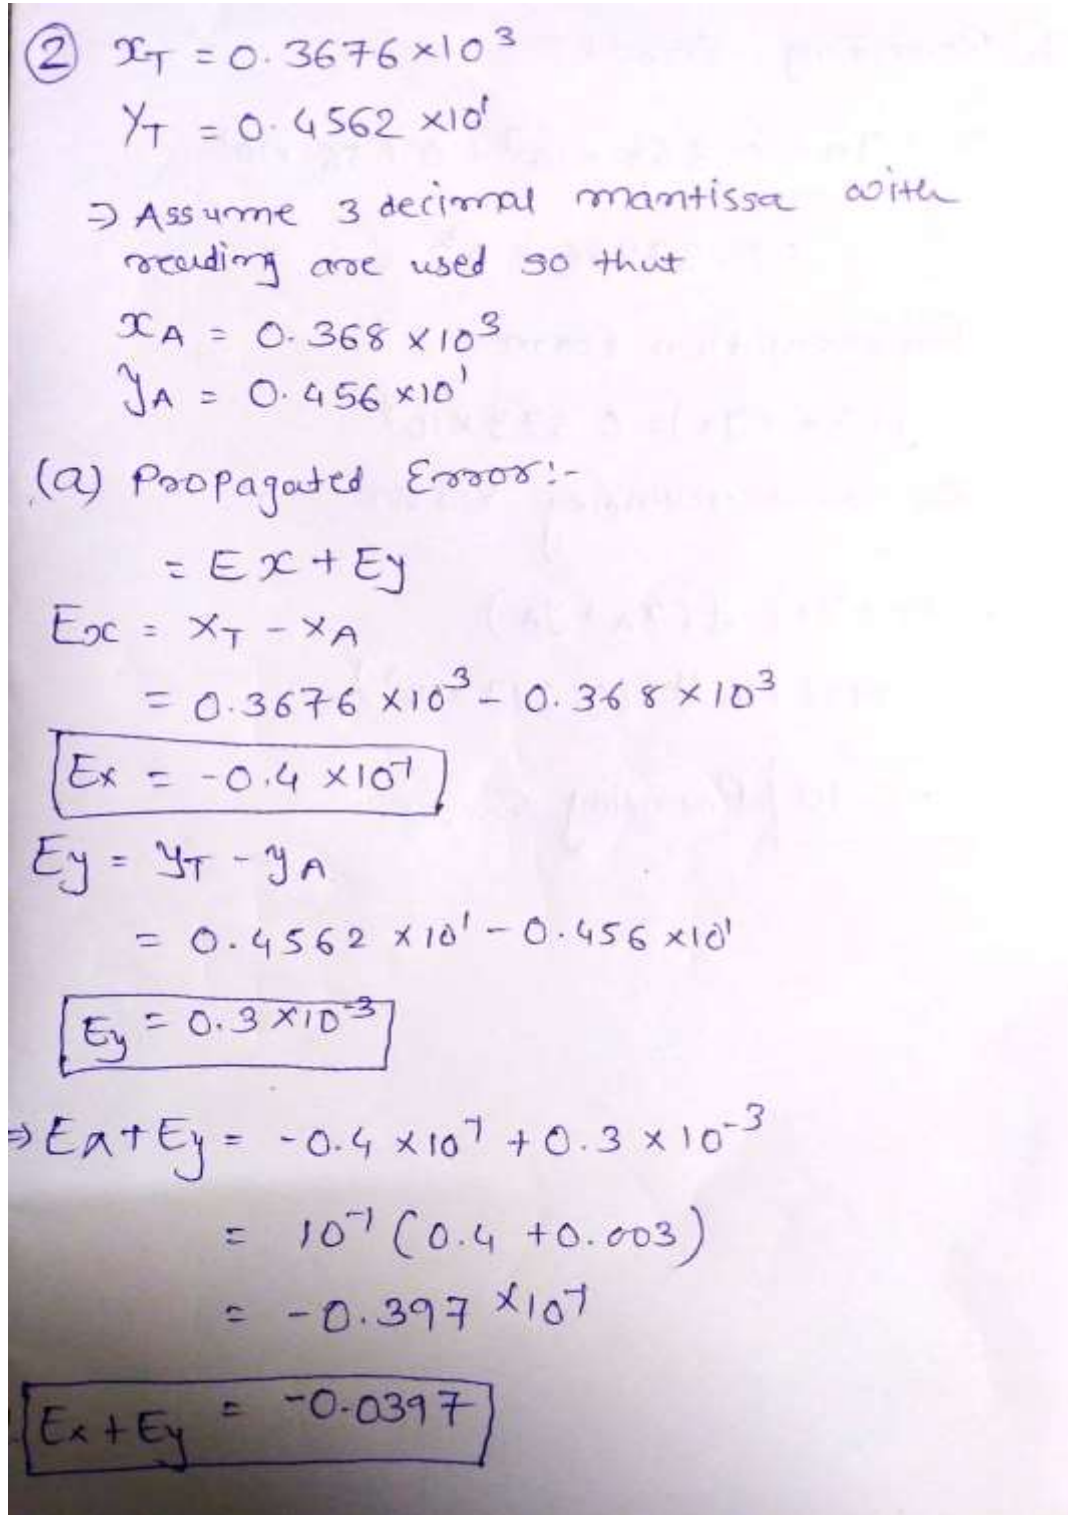 ② x_T = 0.3676 × 10³
Y_T = 0.4562 × 10¹
⇒ Assume 3 decimal mantissa with
reading are used so that
x_A = 0.368 × 10³
y_A = 0.456 × 10¹
(a) Propagated Error:-
= Ex + Ey
Ex = x_T - x_A
= 0.3676 × 10³ - 0.368 × 10³
Ex = -0.4 × 10⁻¹
Ey = y_T - y_A
= 0.4562 × 10¹ - 0.456 × 10¹
Ey = 0.3 × 10⁻³
⇒ Ex + Ey = -0.4 × 10⁻¹ + 0.3 × 10⁻³
= 10⁻¹ (0.4 + 0.003)
= -0.397 × 10⁻¹
Ex + Ey = -0.0397